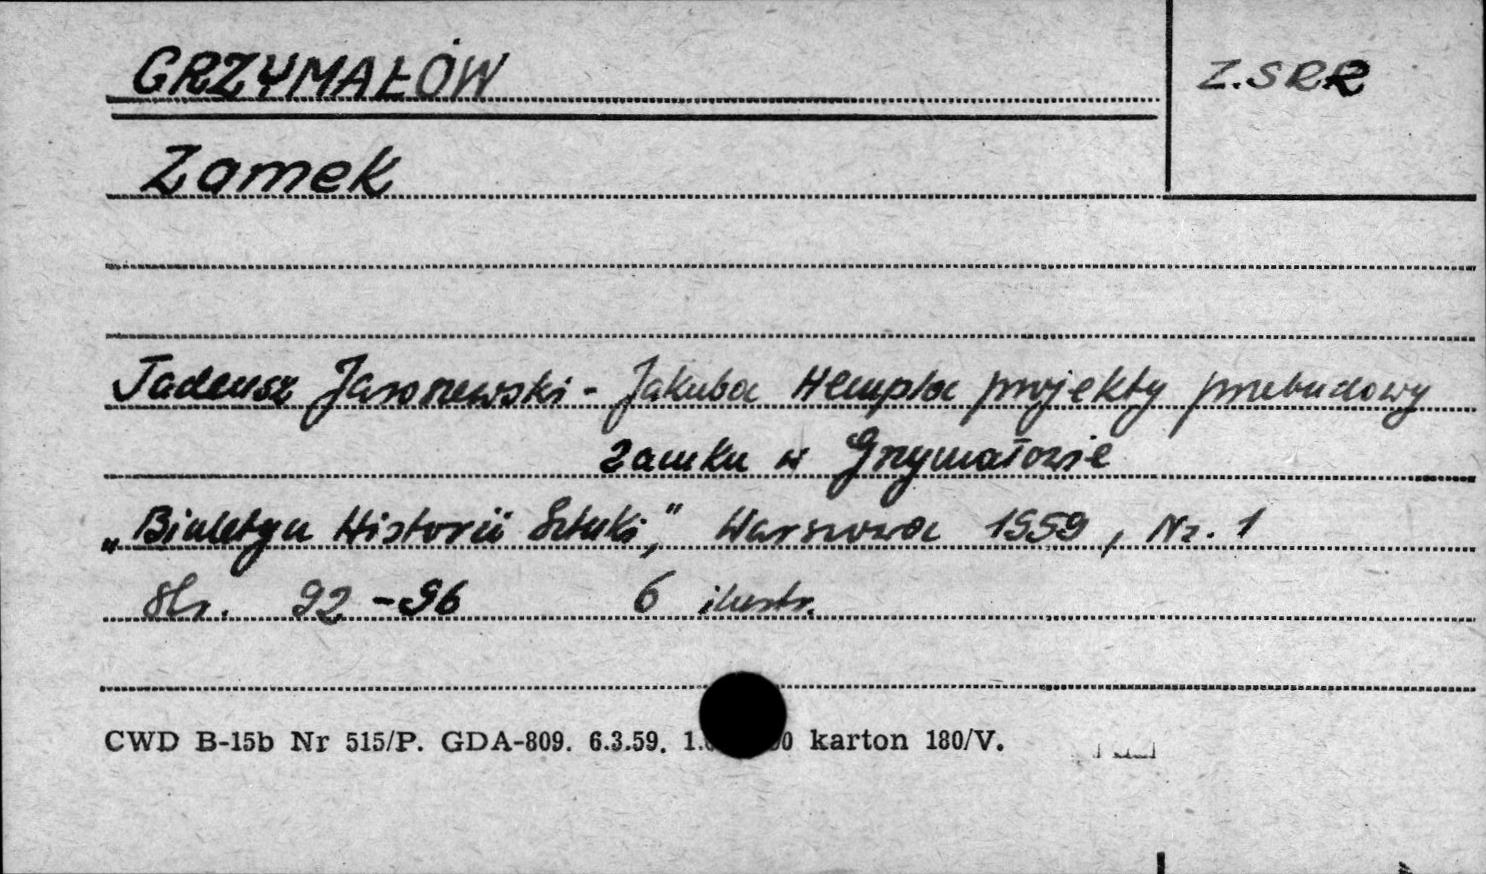 GRZYMAŁÓW
Z.SRR
Zamek
Tadeusz Jaroszewski - Jakuba Hempla projekty przebudowy
zamku w Grzymałowie
„Biuletyn Historii Sztuki," Warszawa 1959, Nr. 1
Str. 92-96 6 ilustr.
CWD B-15b Nr 515/P. GDA-809. 6.3.59. karton 180/V.